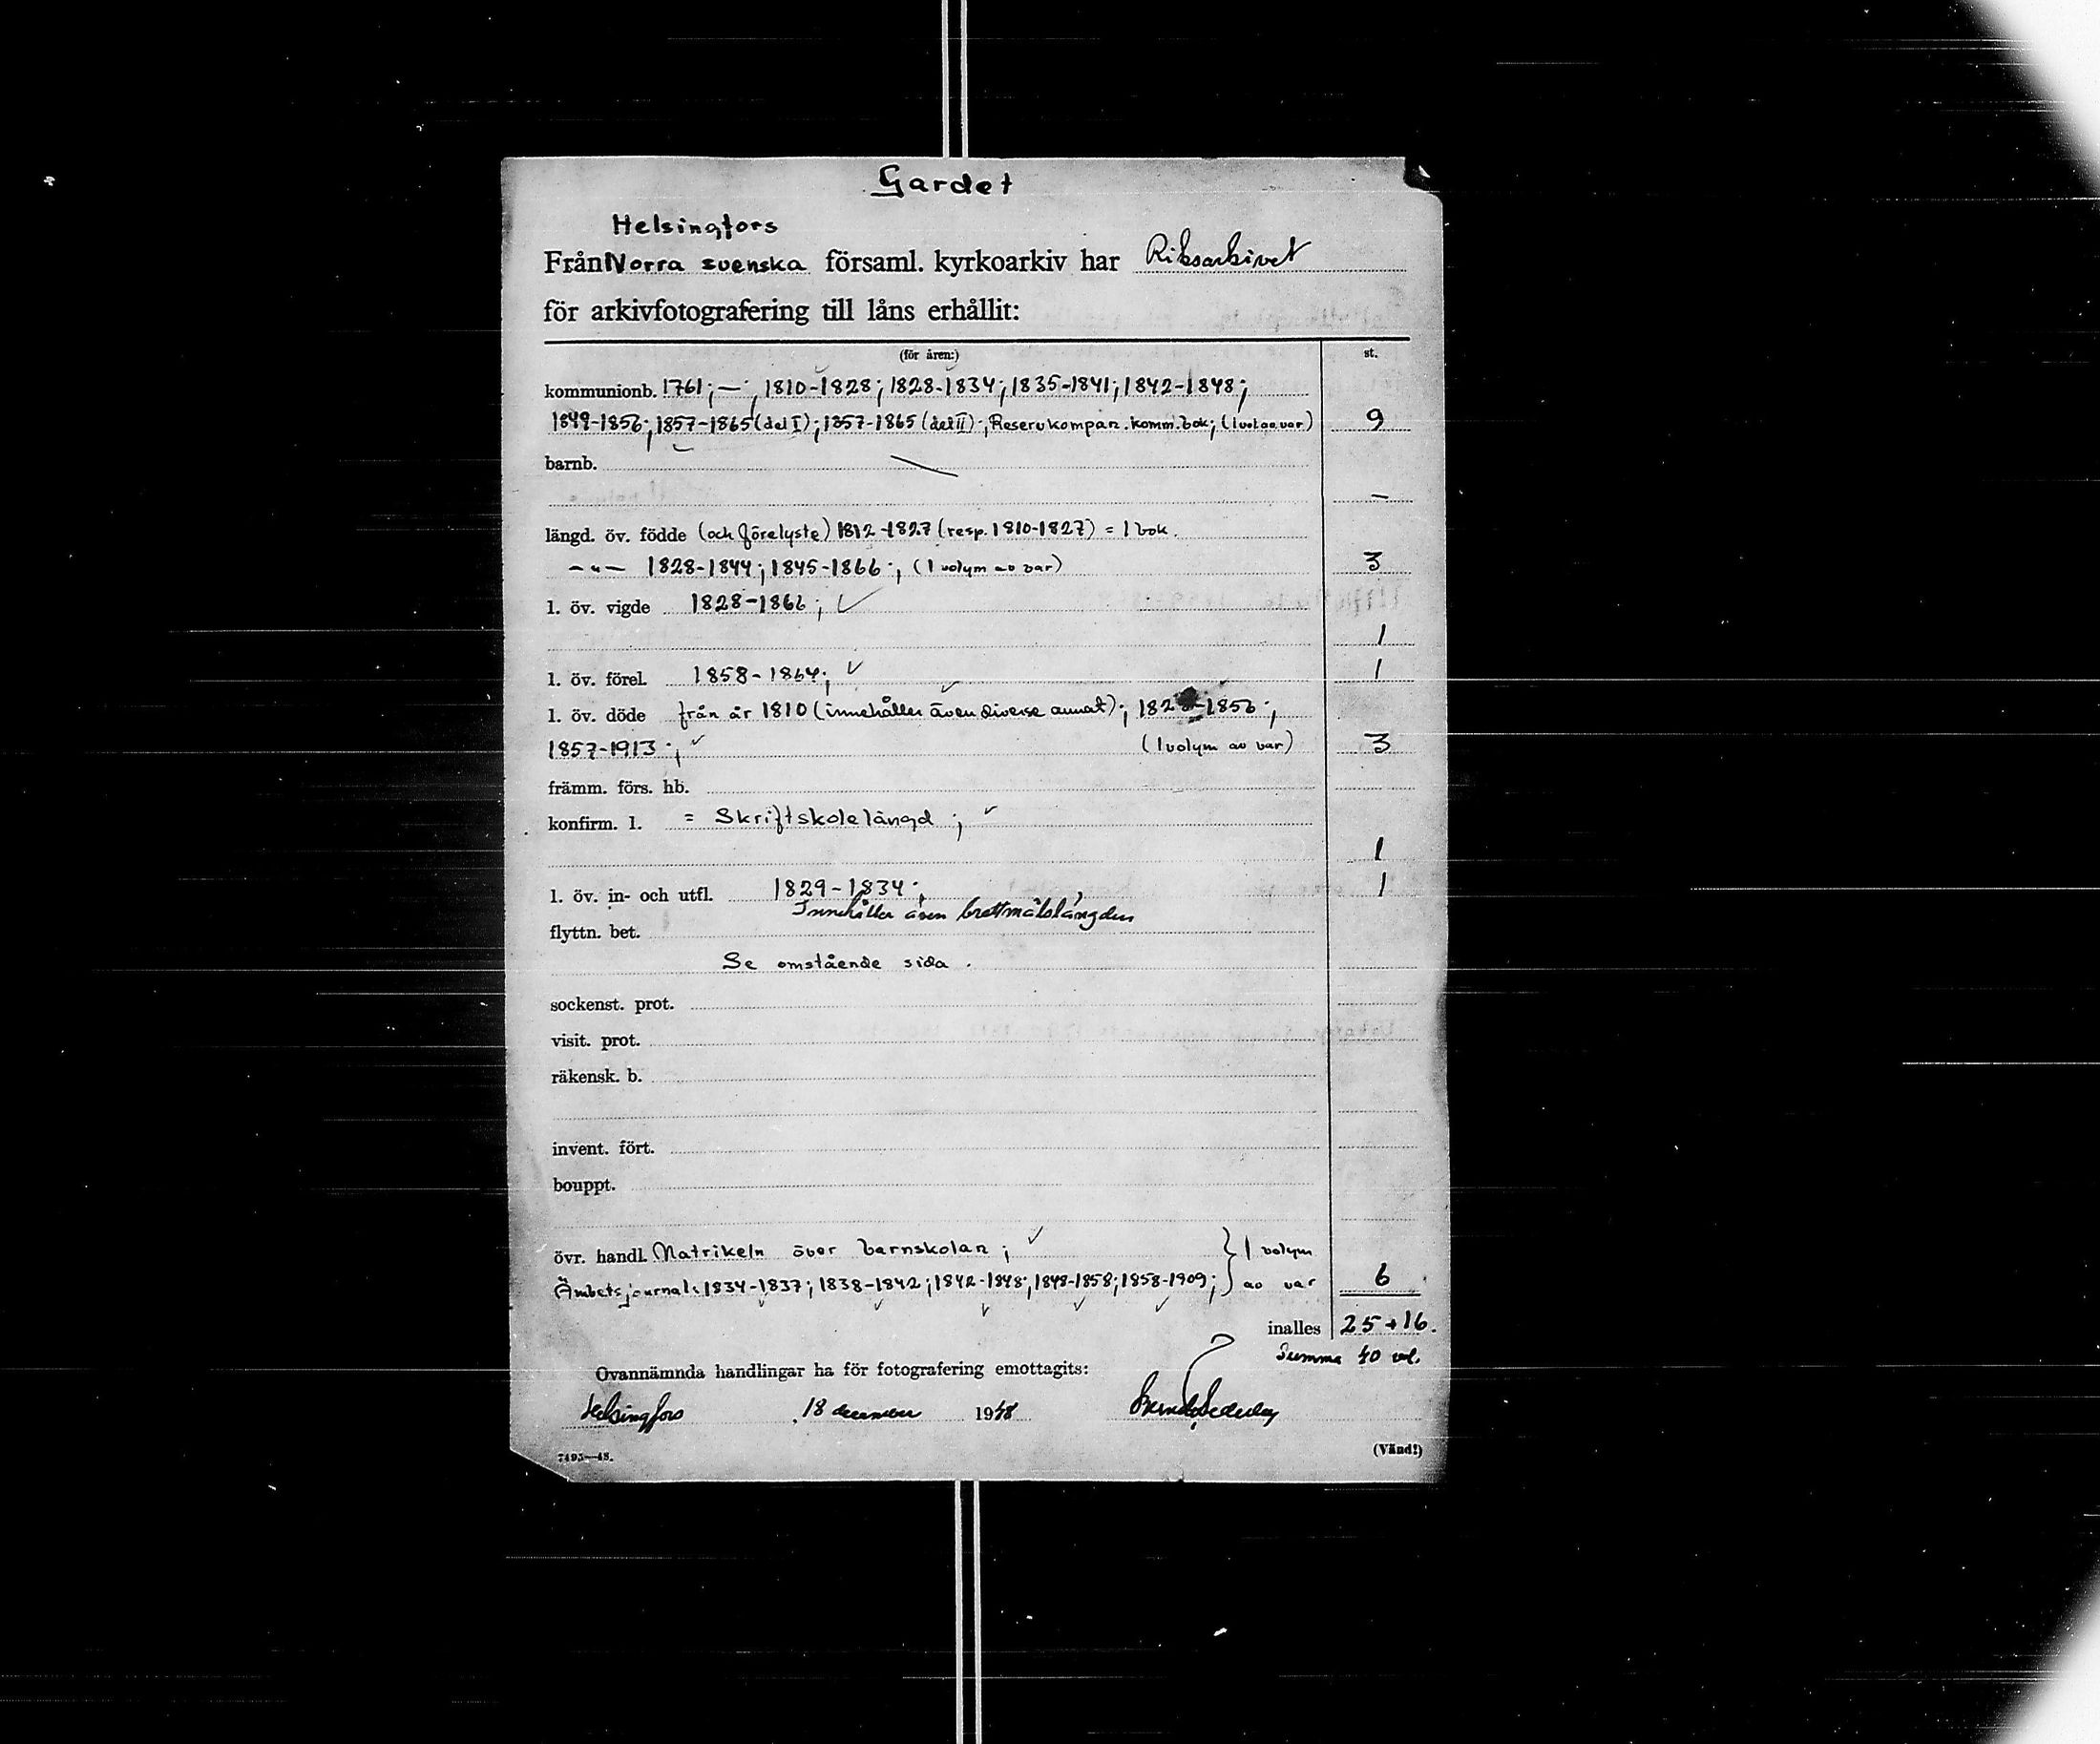 Gardet
Helsingfors
Från Norra svenska församl. kyrkoarkiv har Riksarkivet
för arkivfotografering till låns erhållit:
(för åren:) st.
kommunionb. 1761; —; 1810-1828; 1828-1834; 1835-1841; 1842-1848;
1849-1856; 1857-1865 (del I); 1857-1865 (del II); Reservkompan. komm. bok; (1 vol av var) 9
barnb. —
—
längd. öv. födde (och förelyste) 1812-1827 (resp. 1810-1827) = 1 bok.
-"- 1828-1844; 1845-1866; (1 volym av var) 3
l. öv. vigde 1828-1866; ✓
1
l. öv. förel. 1858-1864; ✓ 1
l. öv. döde från år 1810 (innehåller även diverse annat); 182 -1856;
1857-1913; ✓ (1 volym av var) 3
främm. förs. hb.
konfirm. l. = Skriftskolelängd; ✓
1
l. öv. in- och utfl. 1829-1834; 1
Innehåller även brottmålslängden
flyttn. bet.
Se omstående sida.
sockenst. prot.
visit. prot.
räkensk. b.
invent. fört.
bouppt.
övr. handl. Matrikeln över barnskolan; ✓ } 1 volym
Ämbetsjournal: 1834-1837; 1838-1842; 1842-1848; 1848-1858; 1858-1909; } av var 6
inalles 25+16.
Summa 40 vol.
Ovannämnda handlingar ha för fotografering emottagits:
Helsingfors, 18 december 1948
7493—48. (Vänd!)